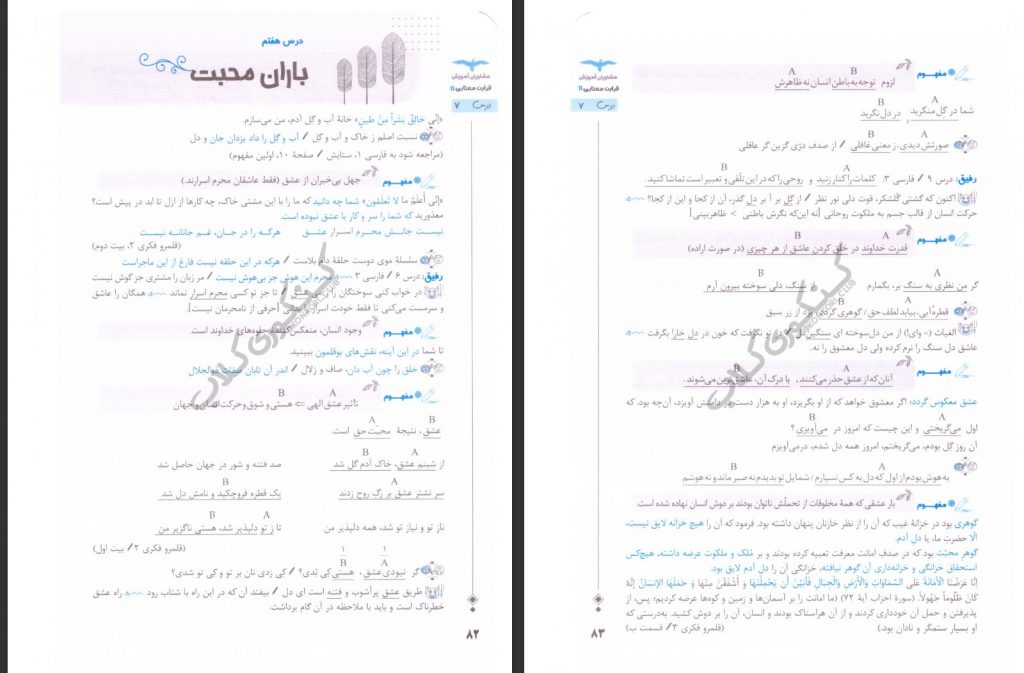 درس هفتم
باران محبت
مشاوران آموزش
قرابت معنایی ۱۱
درس ۷
«إنّی خالِقٌ بَشَراً مِنْ طینٍ» خانهٔ آب و گِل آدم، من می‌سازم.
نسبت اصلم ز خاک و آب و گِل / آب و گِل را داد یزدان جان و دل
(مراجعه شود به فارسی ۱، ستایش / صفحهٔ ۱۰، اولین مفهوم)
مفهوم جهل بی‌خبران از عشق (فقط عاشقان محرم اسرارند.)
«إنّی أعلَمُ ما لا تَعلَمُونَ» شما چه دانید که ما را با این مشتی خاک، چه کارها از ازل تا ابد در پیش است؟
معذورید که شما را سر و کار با عشق نبوده است.
نیست جانش محرم اسرار عشق هرکه را در جان، غم جانانه نیست
(قلمرو فکری ۲، بیت دوم)
سلسلهٔ موی دوست حلقهٔ دام بلاست / هرکه در این حلقه نیست فارغ از این ماجراست
رفیق: درس ۶ / فارسی ۳ محرم این هوش جز بی‌هوش نیست / مر زبان را مشتری جز گوش نیست
در خواب کنی سوختگان را ز می عشق / تا جز تو کسی محرم اسرار نماند همگان را عاشق
و سرمست می‌کنی تا فقط خودت اسرار را بدانی [حرفی از نامحرمان نیست].
مفهوم وجود انسان، منعکس‌کنندهٔ جلوه‌های خداوند است.
تا شما در این آینه، نقش‌های بوقلمون ببینید.
خلق را چون آب دان، صاف و زلال / اندر آن تابان صفات ذوالجلال
A B
مفهوم تأثیر عشق الهی ⇐ هستی و شوق و حرکت انسان و جهان
B A
عشق، نتیجهٔ محبّت حق است.
A B
از شبنم عشق، خاک آدم گل شد صد فتنه و شور در جهان حاصل شد
A B
سر نشتر عشق بر رگ روح زدند یک قطره فروچکید و نامش دل شد
A B
ناز تو و نیاز تو شد، همه دلپذیر من تا ز تو دلپذیر شد، هستی ناگزیر من
(قلمرو فکری ۲/ بیت اول)
۱ ۱
A B
گر نبودی عشق، هستی کی بُدی؟ / کی زدی نان بر تو و کی تو شدی؟
طریق عشق پرآشوب و فتنه است ای دل / بیفتد آن که در این راه با شتاب رود راه عشق
خطرناک است و باید با ملاحظه در آن گام برداشت.
۸۲
مشاوران آموزش
قرابت معنایی ۱۱
درس ۷
B A
مفهوم لزوم توجه به باطن انسان نه ظاهرش
A B
شما در گِل منگرید، در دل نگرید
A B
صورتش دیدی، ز معنی غافلی / از صدف دُرّی گزین گر عاقلی
A B
رفیق: درس ۹ / فارسی ۳: کلمات را کنار زنید و روحی را که در این تلقّی و تعبیر است تماشا کنید.
اکنون که گشتی گلشکر، قوت دلی نور نظر / از گِل بر آ بر دل گذر، آن از کجا و این از کجا؟
حرکت انسان از قالب جسم به ملکوت روحانی [نه این‌که نگرش باطنی > ظاهربینی]
A B
مفهوم قدرت خداوند در خلق کردن عاشق از هر چیزی (در صورت اراده)
A B
گر من نظری به سنگ بر، بگمارم از سنگ، دلی سوخته بیرون آرم
A B
قطرهٔ آبی، بیابد لطف حق / گوهری گردد، برد از زر سبق
الغیاث (= وای!) از من دل‌سوخته ای سنگین‌دل / در تو نگرفت که خون در دل خارا بگرفت
عاشق دل سنگ را نرم کرده ولی دل معشوق را نه.
A B
مفهوم آنان که از عشق حذر می‌کنند، با درک آن، عاشق‌ترین می‌شوند.
عشق معکوس گردد؛ اگر معشوق خواهد که از او بگریزد، او به هزار دست در دامنش آویزد، آن‌چه بود، که
A B
اول می‌گریختی و این چیست که امروز در می‌آویزی؟
آن روز گل بودم، می‌گریختم، امروز همه دل شدم، درمی‌آویزم
A B
به هوش بودم از اول که دل به کس نسپارم / شمایل تو بدیدم نه صبر ماند و نه هوشم
مفهوم بار عشقی که همهٔ مخلوقات از تحملّش ناتوان بودند بر دوش انسان نهاده شده است.
گوهری بود در خزانهٔ غیب که آن را از نظر خازنان پنهان داشته بود. فرمود که آن را هیچ خزانه لایق نیست،
الّا حضرت ما، یا دل آدم.
گوهر محبّت بود که در صدف امانت معرفت تعبیه کرده بودند و بر مُلک و ملکوت عرضه داشته، هیچ‌کس
استحقاق خزانگی و خزانه‌داری آن گوهر نیافته، خزانگی آن را دل آدم لایق بود.
إنّا عَرَضْنَا الْأمانَةَ عَلَی السَّمَاوَاتِ وَالْأَرْضِ وَالْجِبَالِ فَأَبَيْنَ أَنْ يَحْمِلْنَهَا وَ أَشْفَقْنَ مِنْهَا وَ حَمَلَهَا الْإِنسَانُ إِنَّهُ
کَانَ ظَلُوماً جَهُولاً. (سورهٔ احزاب آیهٔ ۷۲) (ما امانت را بر آسمان‌ها و زمین و کوه‌ها عرضه کردیم؛ پس، از
پذیرفتن و حمل آن خودداری کردند و از آن هراسناک بودند و انسان، آن را بر دوش کشید. به‌درستی که
او بسیار ستمگر و نادان بود.) (قلمرو فکری ۳/ قسمت ب)
۸۳